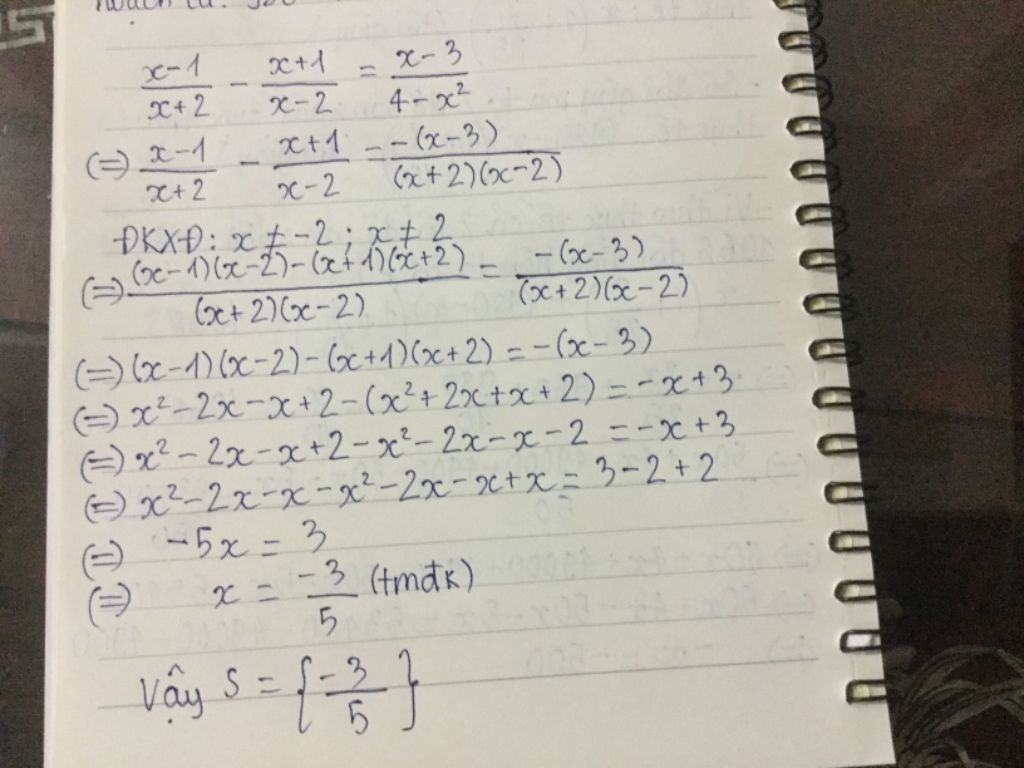 x-1/x+2 - x+1/x-2 = x-3/4-x²
(=) x-1/x+2 - x+1/x-2 = -(x-3)/(x+2)(x-2)
ĐKXĐ: x ≠ -2 ; x ≠ 2
(=) (x-1)(x-2)-(x+1)(x+2)/(x+2)(x-2) = -(x-3)/(x+2)(x-2)
(=) (x-1)(x-2)-(x+1)(x+2) = -(x-3)
(=) x²-2x-x+2-(x²+2x+x+2) = -x+3
(=) x²-2x-x+2-x²-2x-x-2 = -x+3
(=) x²-2x-x-x²-2x-x+x = 3-2+2
(=) -5x = 3
(=) x = -3/5 (tmđk)
Vậy S = {-3/5}